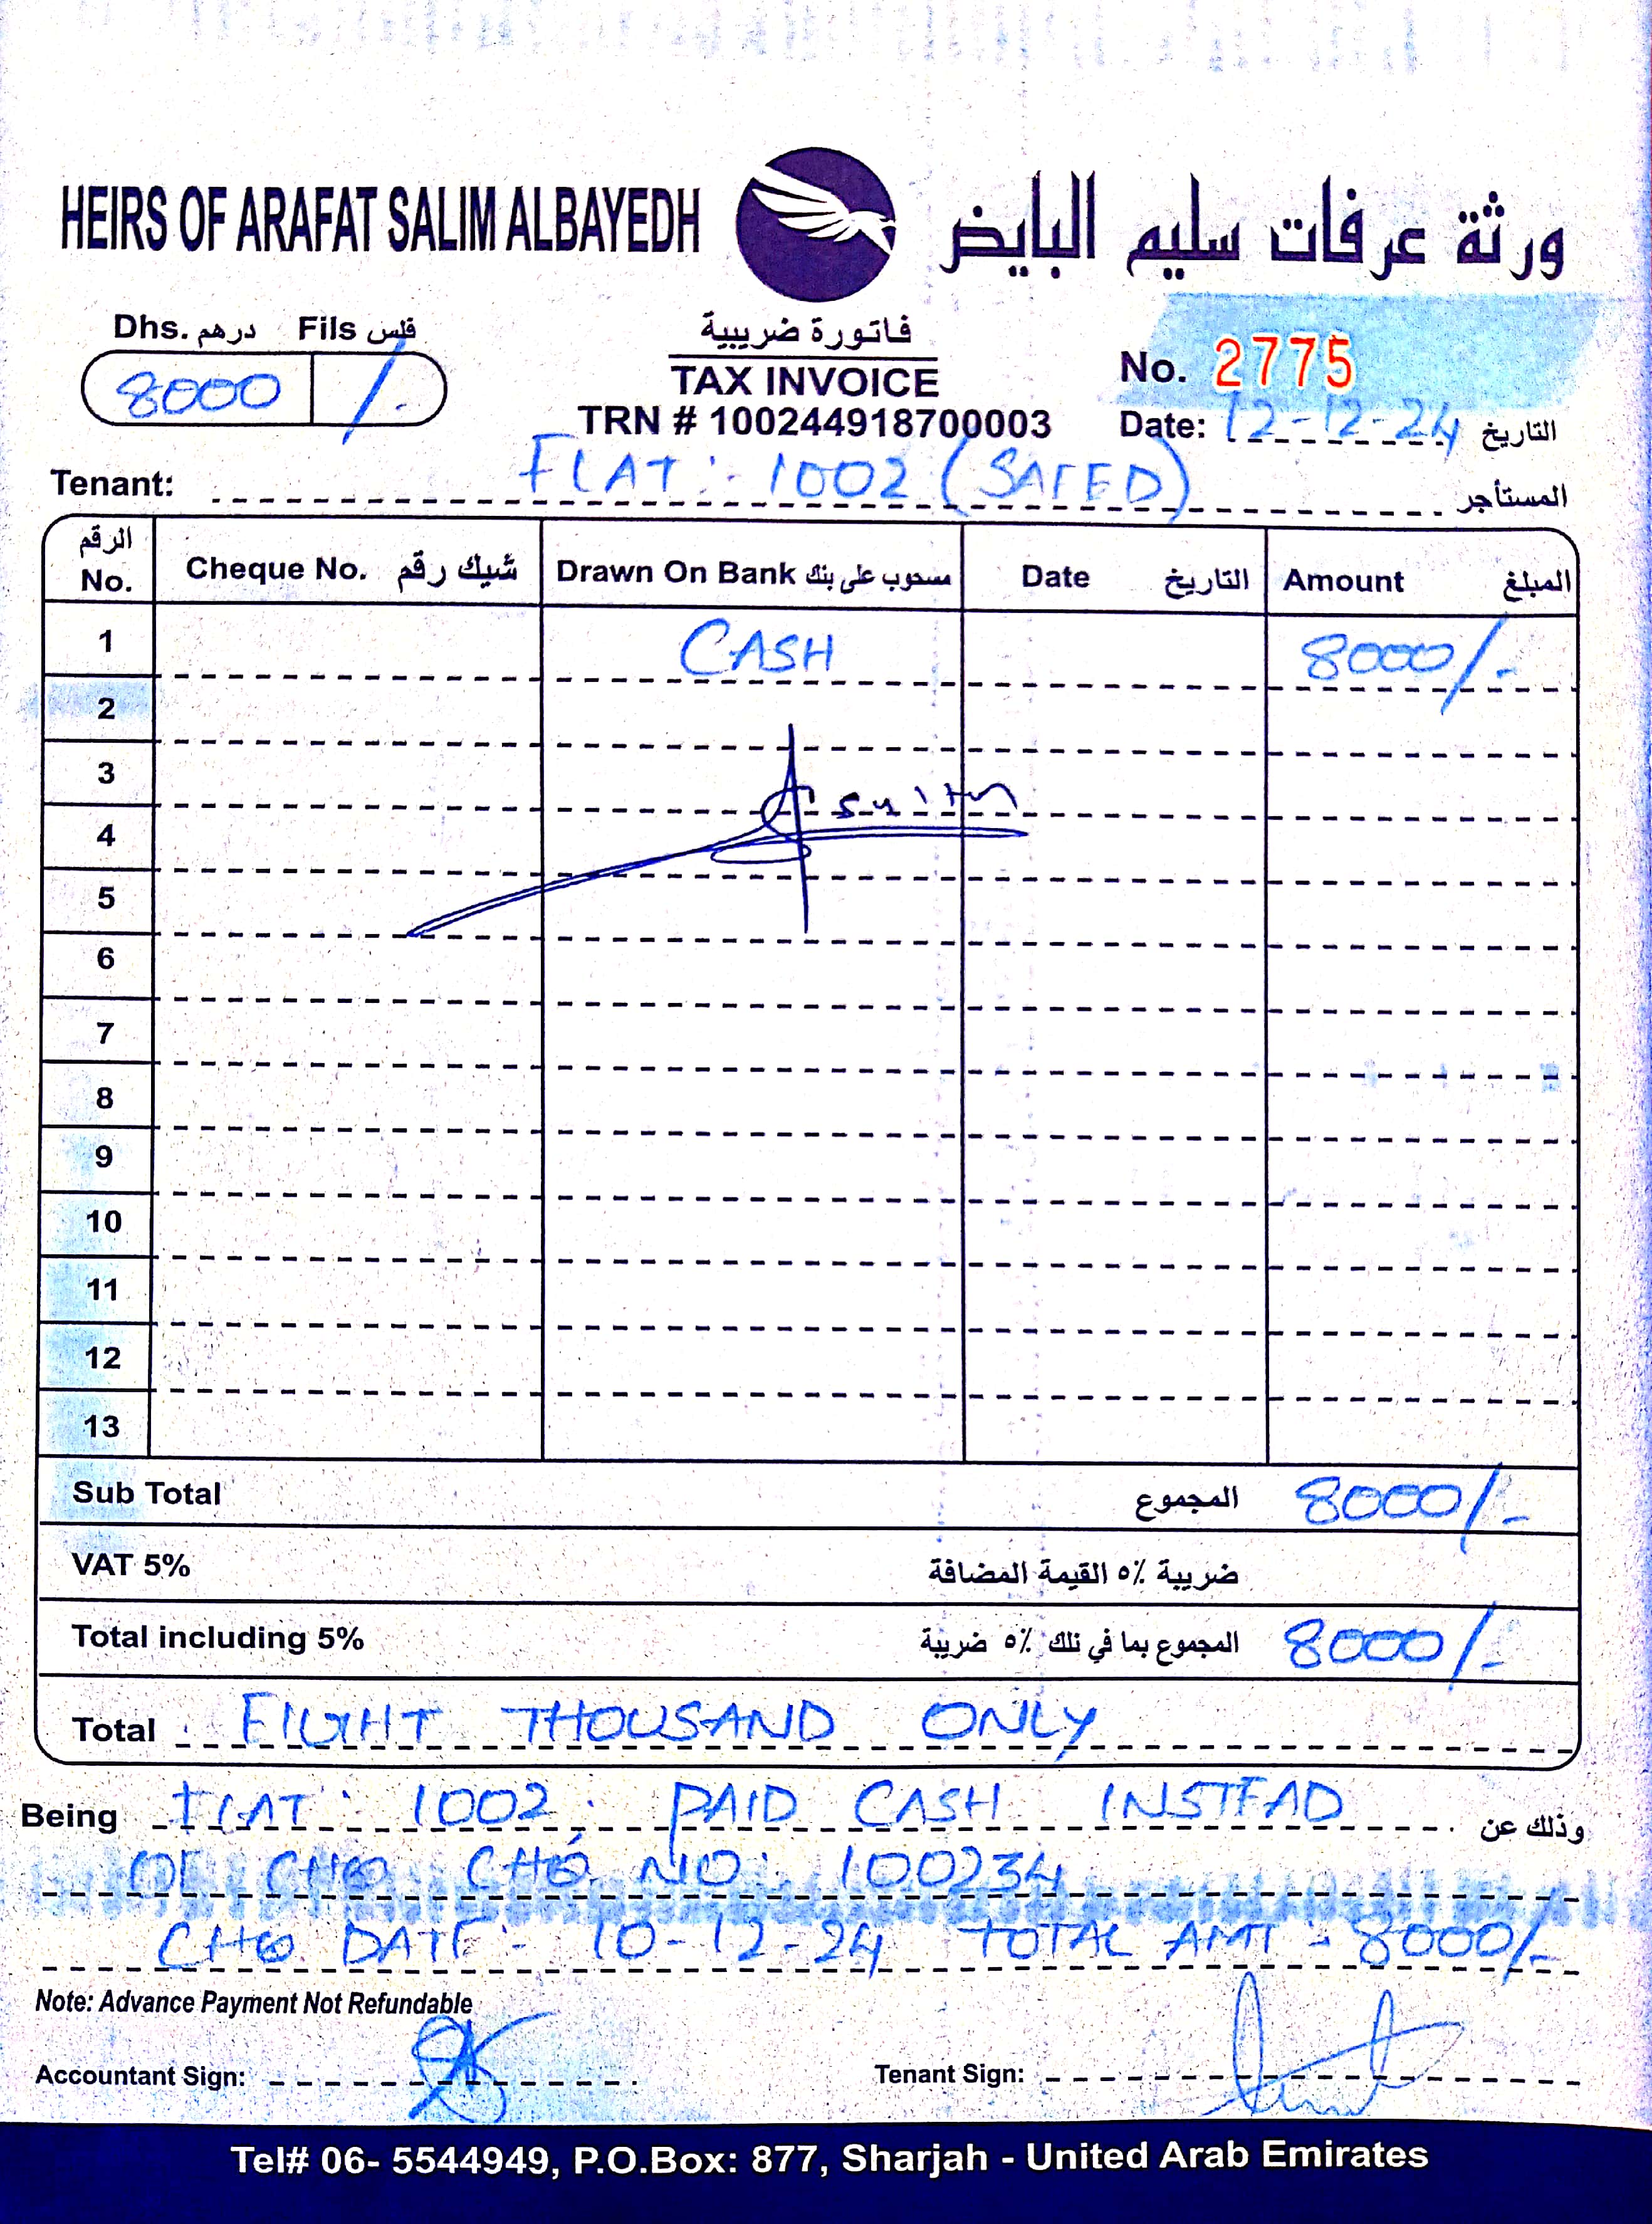 HEIRS OF ARAFAT SALIM ALBAYEDH ورثة عرفات سليم البايض
Dhs. درهم Fils فلس
8000 /-
فاتورة ضريبية
TAX INVOICE
TRN # 100244918700003
No. 2775
Date: 12-12-24 التاريخ
Tenant: FLAT: 1002 (SAEED) المستأجر
الرقم No. Cheque No. شيك رقم Drawn On Bank مسحوب على بنك Date التاريخ Amount المبلغ
1 CASH 8000/-
2
3
4
5
6
7
8
9
10
11
12
13
Sub Total المجموع 8000/-
VAT 5% ضريبة ٥٪ القيمة المضافة
Total including 5% المجموع بما في ذلك ٥٪ ضريبة 8000/-
Total : EIGHT THOUSAND ONLY
Being FLAT: 1002. PAID CASH INSTEAD وذلك عن
OF CHQ CHQ. NO: 100234
CHQ DATE:- 10-12-24 TOTAL AMT - 8000/-
Note: Advance Payment Not Refundable
Accountant Sign: Tenant Sign:
Tel# 06- 5544949, P.O.Box: 877, Sharjah - United Arab Emirates